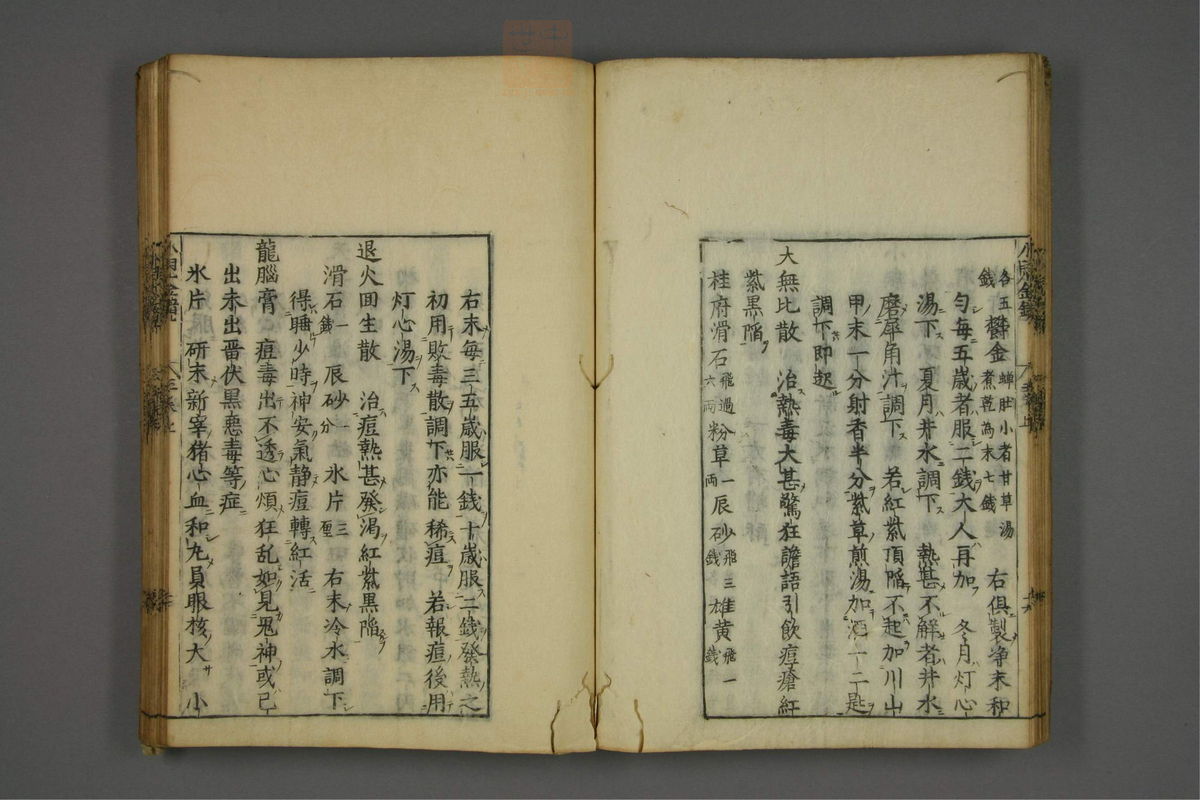 各五錢 鬱金 蝉肚小者甘草湯煮乾為末七錢 右俱製净末和
勻每五歲者服二錢大人再加 冬月灯心
湯下 夏月井水調下 熱甚不解者井水
磨犀角汁調下 若紅紫頂陷不起加川山
甲末一分射香半分紫草煎湯加酒一二匙
調下即起
大無比散 治熱毒大甚驚狂譫語引飲痘瘡紅
紫黑陷
桂府滑石 飛過六兩 粉草 一兩 辰砂 飛三錢 雄黄 飛一錢
右末每三五歲服一錢十歲服二錢發熱之
初用敗毒散調下亦能稀痘 若報痘後用
灯心湯下
退火回生散 治痘熱甚發渴紅紫黑陷
滑石 一錢 辰砂 一分 氷片 三 右末冷水調下
得睡少時神安氣静痘轉紅活
龍腦膏 痘毒出不透心煩狂乱如見鬼神或已
出未出晋伏黒惡毒等症
氷片 研末新宰猪心血和丸員眼核大 小